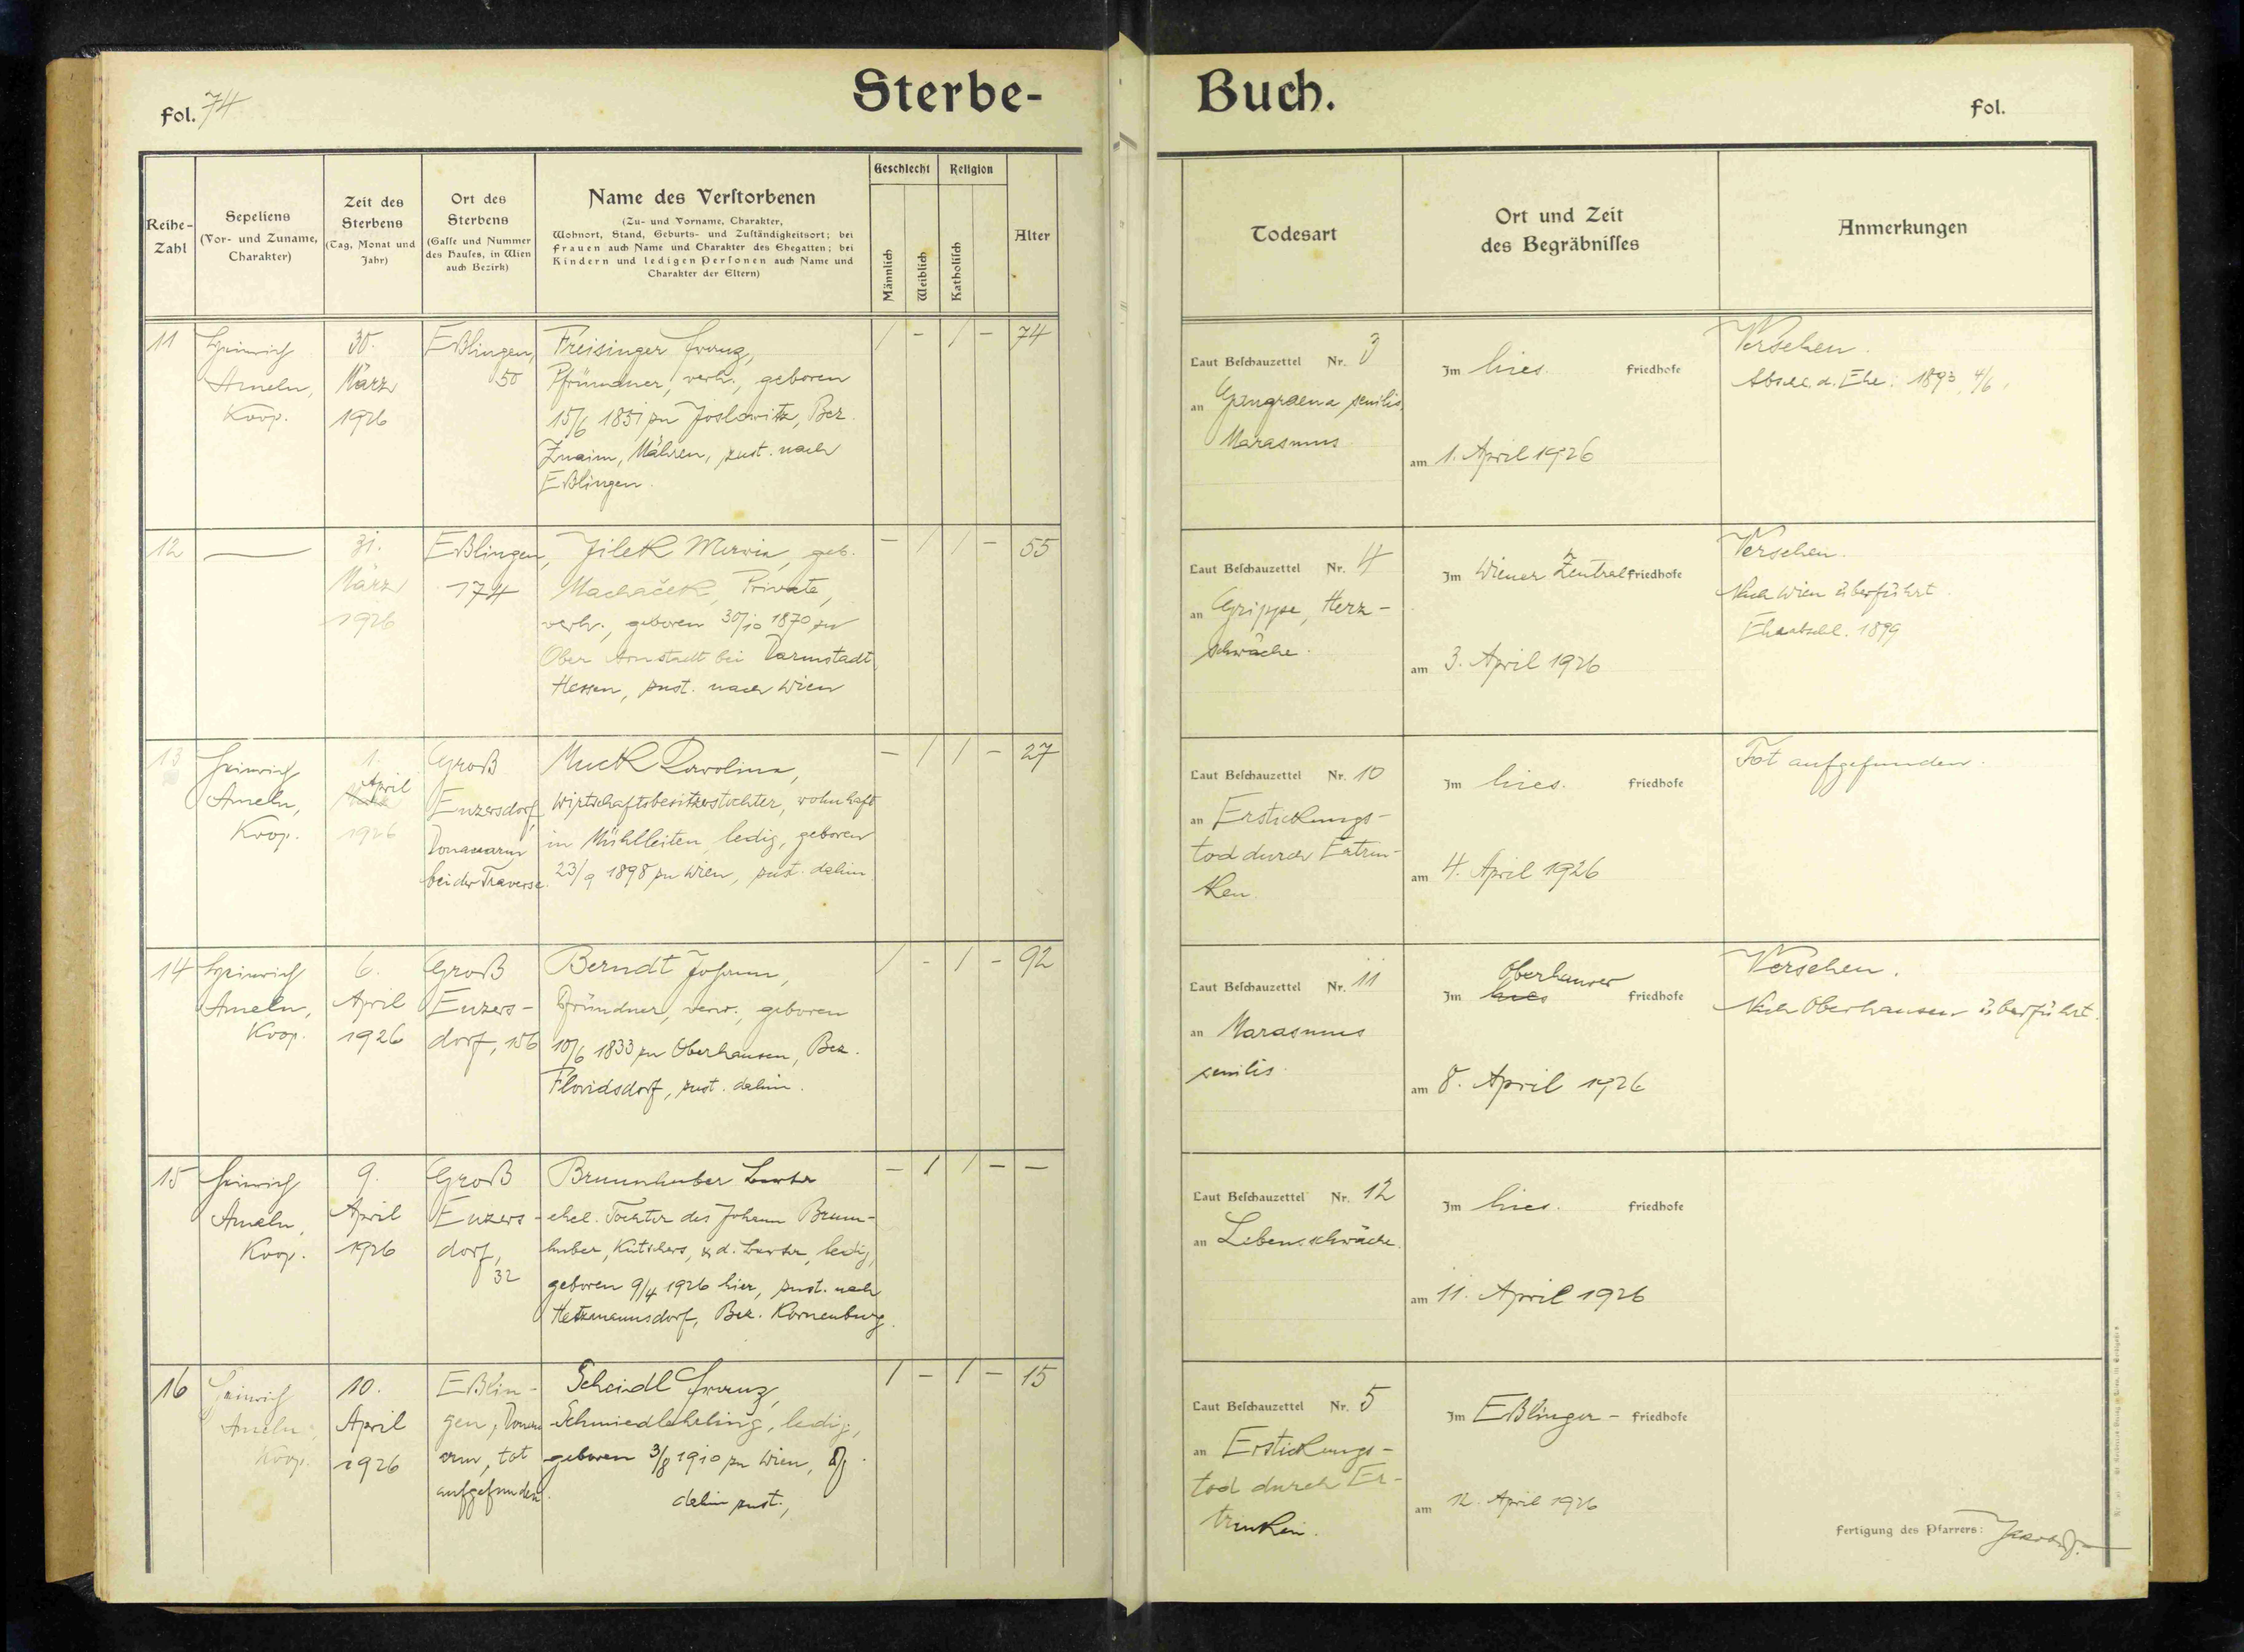 Sterbe-
Buch.
Fol. 74
Fol.
Reihe-
Zahl
Sepeliens
(Vor- und Zuname,
Charakter)
Zeit des
Sterbens
(Tag, Monat und
Jahr)
Ort des
Sterbens
(Gasse und Nummer
des Hauses, in Wien
auch Bezirk)
Name des Verstorbenen
(Zu- und Vorname, Charakter,
Wohnort, Stand, Geburts- und Zuständigkeitsort; bei
Frauen auch Name und Charakter des Ehegatten; bei
Kindern und ledigen Personen auch Name und
Charakter der Eltern)
Geschlecht
Männlich
Weiblich
Religion
Katholisch
Alter
Todesart
Ort und Zeit
des Begräbnisses
Anmerkungen
11
Heinrich
Ameln,
Koop.
30.
März
1926
Eßlingen,
50
Freisinger Franz,
Pfründner, verh., geboren
15/6 1851 zu Joslowitz, Bez.
Znaim, Mähren, zust. nach
Eßlingen.
/ - / - 74
Laut Beschauzettel Nr. 3
an Gangraena senilis,
Marasmus
Im hies. Friedhofe
am 1. April 1926
Versehen.
Abschl. d. Ehe: 1893, 4/6.
12
—
31.
März
1926
Eßlingen,
174
Jilek Maria, geb.
Machaček, Private,
verh., geboren 30/10 1870 zu
Ober Amstadt bei Darmstadt,
Hessen, zust. nach Wien
- / / - 55
Laut Beschauzettel Nr. 4
an Grippe, Herz-
schwäche.
Im Wiener Zentral Friedhofe
am 3. April 1926
Versehen.
Nach Wien überführt.
Eheabschl. 1899
13
Heinrich
Ameln,
Koop.
1.
April
1926
Groß
Enzersdorf,
Donauarm
bei der Traverse.
Muck Karolina,
Wirtschaftsbesitzerstochter, wohnhaft
in Mühlleiten, ledig, geboren
23/9 1898 zu Wien, zust. dahin.
- / / - 27
Laut Beschauzettel Nr. 10
an Erstickungs-
tod durch Ertrin-
ken.
Im hies. Friedhofe
am 4. April 1926
Tot aufgefunden.
14
Heinrich
Ameln,
Koop.
6.
April
1926
Groß
Enzers-
dorf, 156
Berndt Johann,
Pfründner, verw., geboren
10/6 1833 zu Oberhausen, Bez.
Floridsdorf, zust. dahin.
/ - / - 92
Laut Beschauzettel Nr. 11
an Marasmus
senilis.
Oberhauser
Im hies Friedhofe
am 8. April 1926
Versehen.
Nach Oberhausen überführt.
15
Heinrich
Ameln,
Koop.
9.
April
1926
Groß
Enzers-
dorf,
32
Brunnhuber
ehel. Tochter des Johann Brunn-
huber, Kutschers, u. d. ledig,
geboren 9/4 1926 hier, zust. nach
Hetzmannsdorf, Bez. Korneuburg.
- / / - -
Laut Beschauzettel Nr. 12
an Lebensschwäche.
Im hies. Friedhofe
am 11. April 1926
16
Heinrich
Ameln,
Koop.
10.
April
1926
Eßlin-
gen, Donau
arm, tot
aufgefunden.
Scheidl Franz,
Schmiedlehrling, ledig,
geboren 3/8 1910 zu Wien,
dahin zust.,
/ - / - 15
Laut Beschauzettel Nr. 5
an Erstickungs-
tod durch Er-
trinken.
Im Eßlinger - Friedhofe
am 12. April 1926
Fertigung des Pfarrers: